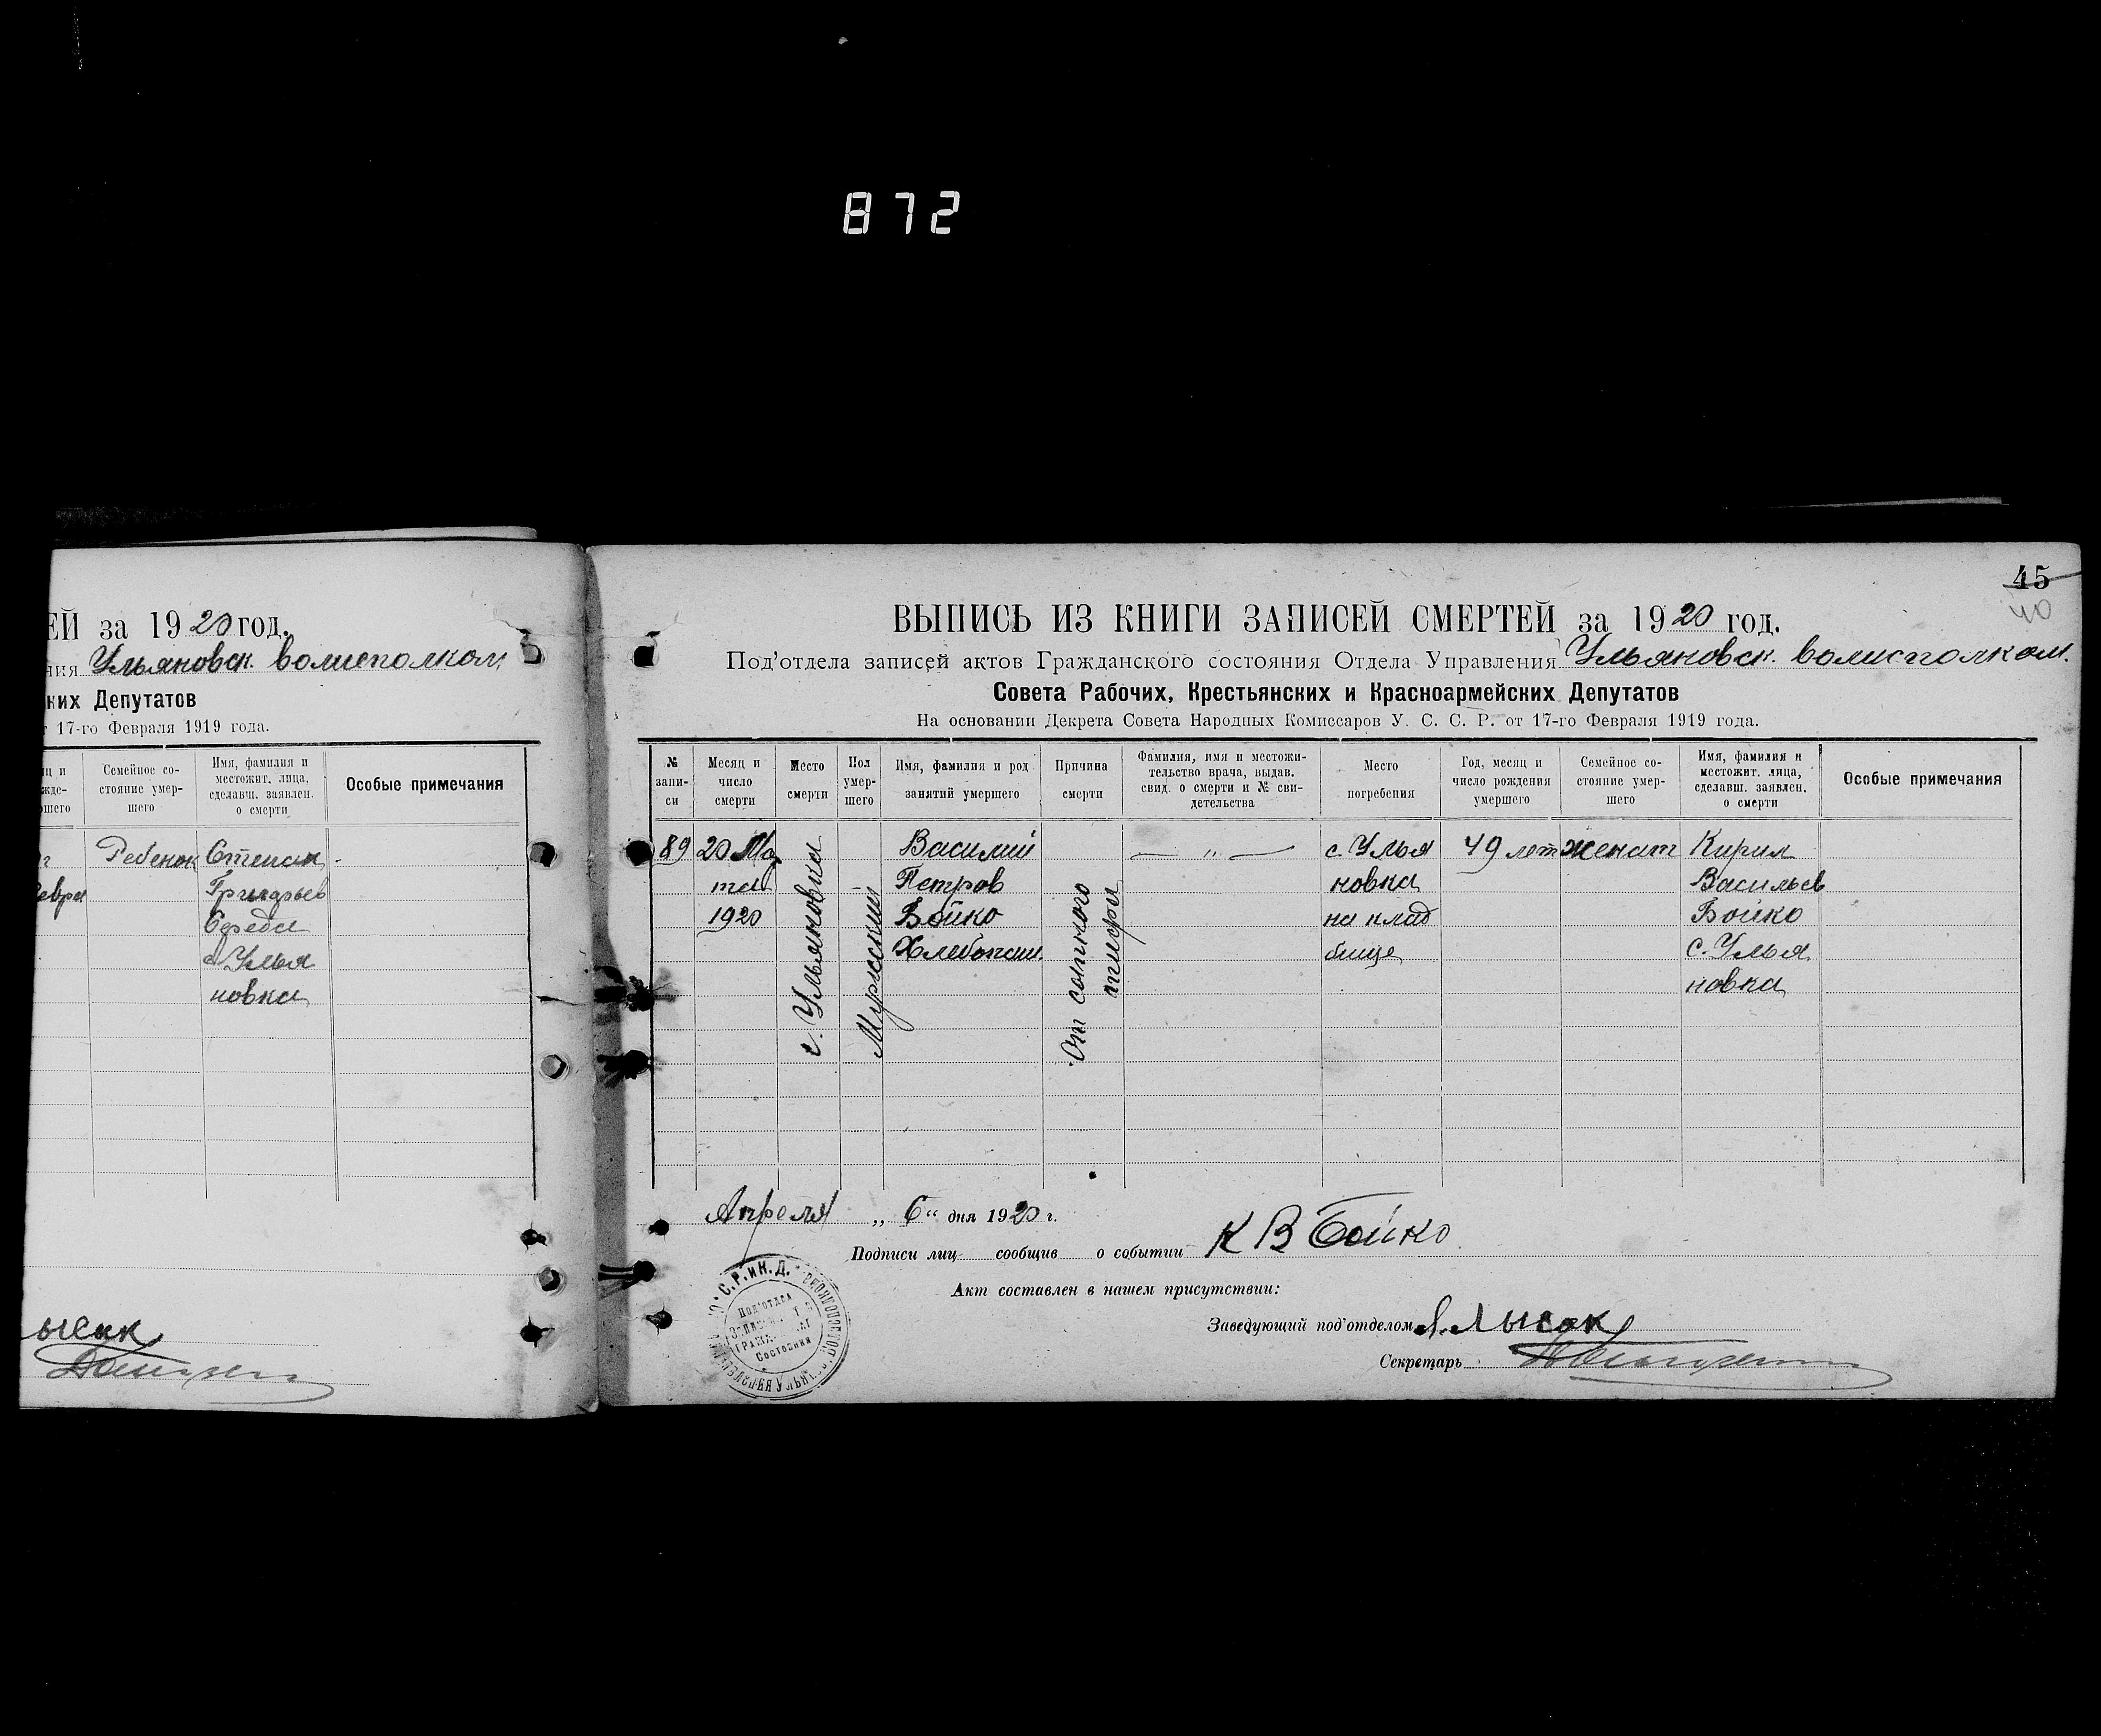 872
ЕЙ за 1920 год.
ния Ульяновск. волисполком
ких Депутатов
т 17-го Февраля 1919 года.
Семейное со-
стояние умер-
шего
Имя, фамилия и
местожит. лица,
сделавш. заявлен.
о смерти
Особые примечания
Ребенок
Степан
Григорьев
Середа
с Улья
новка
ысак
45
40
ВЫПИСЬ ИЗ КНИГИ ЗАПИСЕЙ СМЕРТЕЙ за 1920 год.
Под'отдела записей актов Гражданского состояния Отдела Управления Ульяновск. волисполком.
Совета Рабочих, Крестьянских и Красноармейских Депутатов
На основании Декрета Совета Народных Комиссаров У. С. С. Р. от 17-го Февраля 1919 года.
№
запи-
си
Месяц и
число
смерти
Место
смерти
Пол
умер-
шего
Имя, фамилия и род
занятий умершего
Причина
смерти
Фамилия, имя и местожи-
тельство врача, выдав.
свид. о смерти и № сви-
детельства
Место
погребения
Год, месяц и
число рождения
умершего
Семейное со-
стояние умер-
шего
Имя, фамилия и
местожит. лица,
сделавш. заявлен.
о смерти
Особые примечания
89
20 Мар
та
1920
с. Ульяновка
Мужский
Василий
Петров
Бойко
Хлебопаш.
От сыпного
тифа
— " —
с. Улья
новка
на клад
бище
49 лет
женат
Кирил
Васильев
Бойко
с. Улья
новка
Апреля „ 6 " дня 1920 г.
Подписи лиц сообщив о событии К В Бойко
Акт составлен в нашем присутствии:
Заведующий под'отделом Лысак
Секретарь
С.Р.иК.Д.
Под'отдел
Состояния